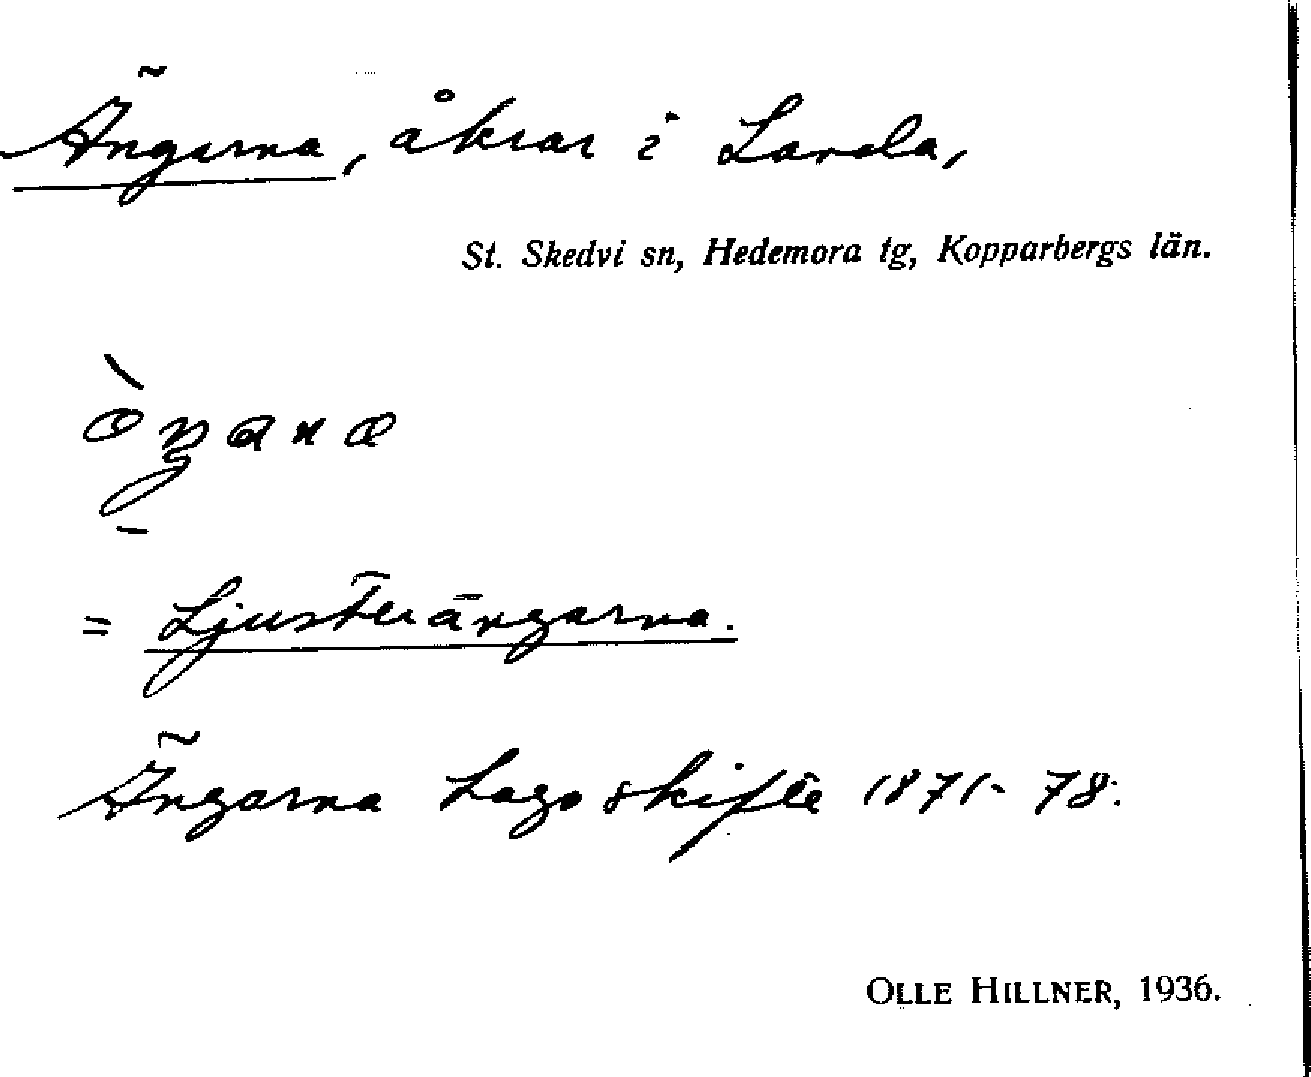 Ängarna, åkrar i Landa,
St. Skedvi sn, Hedemora tg, Kopparbergs län.
= Ljusterängarna.
Ängarna Lagaskifte 1871-78.
OLLE HILLNER, 1936.